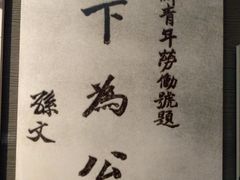 青年勞働號題
下為公
孫文